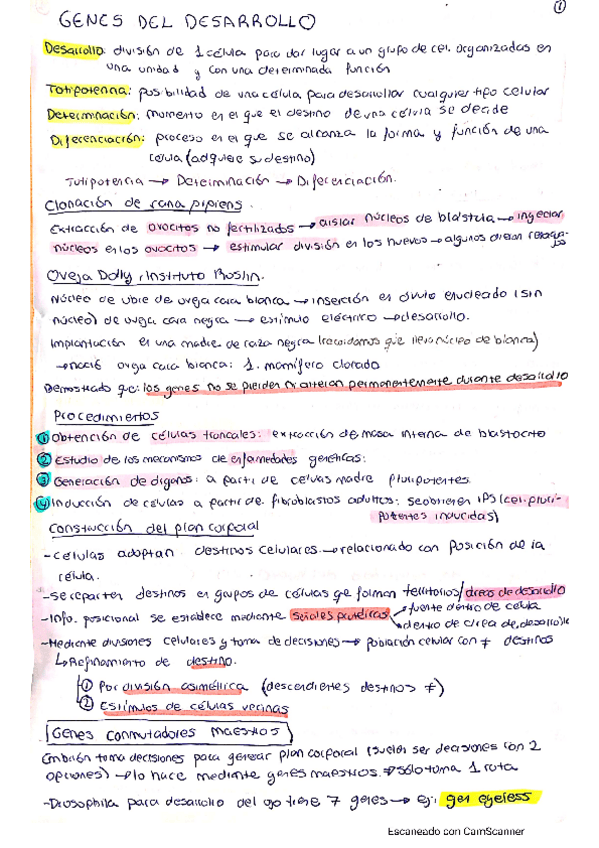 ①
GENES DEL DESARROLLO
Desarrollo: división de 1 célula para dar lugar a un grupo de cel. organizadas en
una unidad y con una determinada función
Totipotencia: posibilidad de una célula para desarrollar cualquier tipo celular
Determinación: momento en el que el destino de una célula se decide
Diferenciación: proceso en el que se alcanza la forma y función de una
célula (adquiere su destino)
Totipotencia → Determinación → Diferenciación.
Clonación de rana pipiens
Extracción de ovocitos no fertilizados → aislar núcleos de blástula → inyectar
núcleos en los ovocitos → estimular división en los huevos → algunos dieron
Oveja Dolly, Instituto Roslin.
Núcleo de ubre de oveja cara blanca → inserción en óvulo enucleado (sin
núcleo) de oveja cara negra → estímulo eléctrico → desarrollo.
Implantación en una madre de raza negra (recordamos que lleva núcleo de blanca)
→ nació oveja cara blanca: 1. mamífero clonado
Demostrado que: los genes no se pierden ni alteran permanentemente durante desarrollo
Procedimientos
① Obtención de células troncales: extracción de masa interna de blastocito
② Estudio de los mecanismos de enfermedades genéticas:
③ Generación de órganos: a partir de células madre pluripotentes
④ Inducción de células a partir de fibroblastos adultos: se obtienen iPS (cel. pluri-
potentes inducidas)
Construcción del plan corporal
- células adoptan destinos celulares → relacionado con posición de la
célula.
- se reparten destinos en grupos de células qe forman territorios/áreas de desarrollo
- Info. posicional se establece mediante señales proteicas
fuente dentro de célula
dentro de área de desarrollo
- Mediante divisiones celulares y toma de decisiones → población celular con ≠ destinos
↳ Refinamiento de destino.
① Por división asimétrica (descendientes destinos ≠)
② Estímulos de células vecinas
Genes conmutadores maestros
Embrión toma decisiones para generar plan corporal (suelen ser decisiones con 2
opciones) → lo hace mediante genes maestros → sólo toma 1 ruta
- Drosophila para desarrollo del ojo tiene 7 genes → ej: gen eyeless
Escaneado con CamScanner